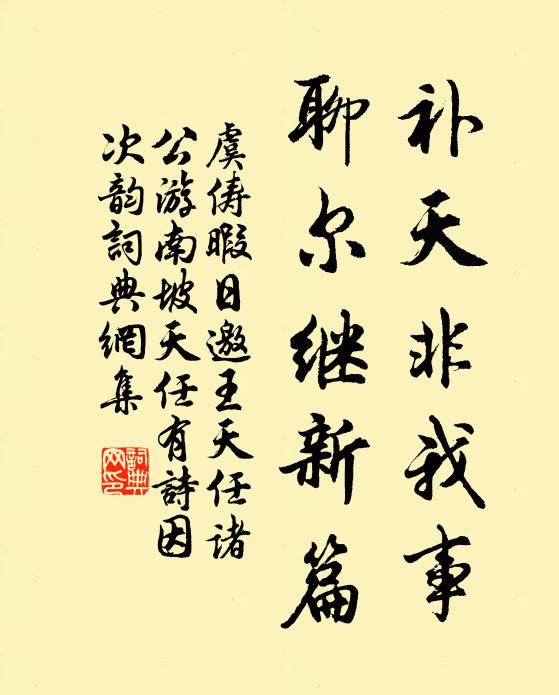 补天非我事
聊尔继新篇
虞俦暇日邀王天任诸
公游南坡天任有詩因
次韵詞典網集
詞典
网印